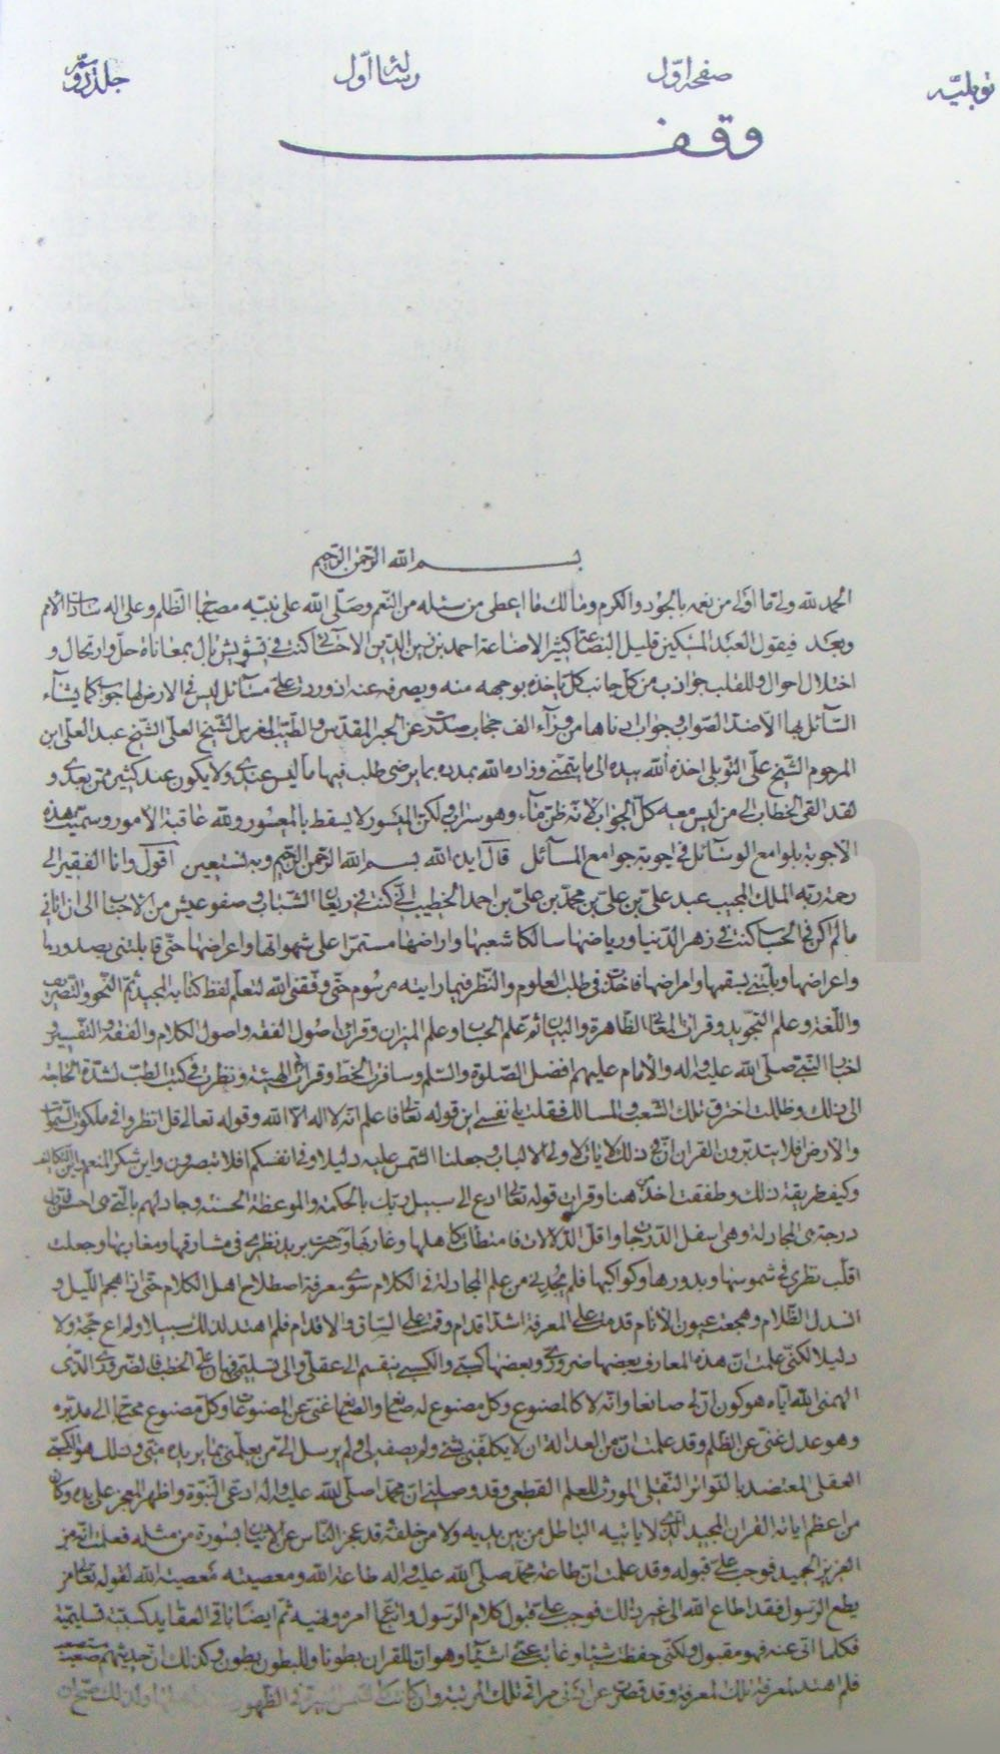 توبلیّه صفحه اوّل رساله اوّل جلد دوّم
وقف
بسم الله الرّحمن الرّحیم
الحمد لله ولیّ ما اولی من نعمه بالجود والکرم ومالک ما اعطی من سئله من النّعم وصلّی الله علی نبیّه مصباح الظّلم وعلی اله سادات الأمم
وبعد فیقول العبد المسکین قلیل البضاعة کثیر الاضاعة احمد بن زین الدّین الاحسائی کنت فی تشویش بال بمعاناة حلّ وارتحال و
اختلال احوال وللقلب جواذب من کلّ جانب کلّ یاخذه بوجهه منه ویصرفه عنه اذ وردت علیّ مسائل لیس فی الارض لها جواب کما یشآء
السّآئل بها الّا ضدّ الصّواب وجواب ادناها من ورآء الف حجاب صدرت عن الحبر المقدّس والطّیّب المغرس الشّیخ العلیّ الشّیخ عبد العلی ابن
المرحوم الشّیخ علیّ التّوبلی اخذ الله بیده الی ما یتمنّی وزاده الله بمدده بما یرضی طلب فیها ما لیس عندی ولا یکون عند کثیر ممّن بعدی و
لقد القی الخطاب الی من لیس معه کلّ الجواب لانّه ظنّ مآء وهو سراب لکن المیسور لا یسقط بالمعسور ولله عاقبة الأمور وسمّیت هذه
الاجوبة بلوامع الوسآئل فی اجوبة جوامع المسآئل قال ایده الله بسم الله الرّحمن الرّحیم وبه نستعین اقول وانا الفقیر الی
رحمة ربّه الملک المجیب عبد علی بن علی بن محمّد بن علیّ بن احمد الخطیب انّی کنت فی ریعان الشّباب وصفو عیش من الاحباب الی ان اتانی
ما لم اکن فی الحساب کنت فی زهر الدّنیا وریاضها سالکا شعبها واراضها مستمرّا علی شهواتها واعراضها حتّی قابلتنی بصدورها
واعراضها وبلتنی بسقمها وامراضها فاخذت فی طلب العلوم والنّظر فیما رایته مرسوم حتّی وفّقنی الله لتعلّم لفظ کتابه المجید ثمّ النّحو والتّصریف
واللّغة وعلم التّجوید وقرات المعانی الظّاهرة والبیان ثمّ علم الحساب وعلم المیزان وقرات اصول الفقه واصول الکلام والفقه والتّفسیر
لاخبار النّبیّ صلّی الله علیه واله والأمام علیهم افضل الصّلوة والسّلم وسافرت الخطّ وقرات الهیئة ونظرت فی کتب الطبّ لشدّة الحاجة
الی ذلک وظللت اخرق تلک الشّعب والمسالک فقلت یا نفسی این قوله تعالی فاعلم انّه لا اله الا الله وقوله تعالی قل انظروا فی ملکوت السّموات
والأرض افلا یتدبّرون القران انّ فی ذلک لایات لاولی الالباب وجعلنا الشّمس علیه دلیلا وفی انفسکم افلا تبصرون واین شکر المنعم
وکیف طریقة ذلک وطفقت اخذ من هنا وقرات قوله تعالی ادع الی سبیل ربّک بالحکمة والموعظة الحسنة وجادلهم بالّتی هی احسن
درجة هی المجادلة وهی اسفل الدّرجات واقلّ الدّلالات فامتطات کاهلها وغاربها وسرت برید نظری فی مشارقها ومغاربها وجعلت
اقلّب نظری فی شموسها وبدورها وکواکبها فلم یجدنی من علم المجادلة فی الکلام سوی معرفة اصطلاح اهل الکلام حتّی اذا هجم اللّیل و
انسدل الظّلام وهجعت عیون الأنام قدمت علی المعرفة اشدّ اقدام وقمت علی السّاق والاقدام فلم اهتد لذلک سبیلا ولم اع حجّة ولا
دلیلا لکنّی علمت انّ هذه المعارف بعضها ضروریّ وبعضها کسبی والکسبی ینقسم الی عقلی والی نسلیمی فهان علیّ الخطب فالضّروری الّذی
الهمنی الله ایّاه هو کون ان لی صانعا وانّه لا کالمصنوع وکلّ مصنوع له صانع والصّانع غنیّ عن المصنوع وکلّ مصنوع محتاج الی مدبّره
وهو عدل غنیّ عن الظّلم وقد علمت انّ من العدالة ان لا یکلّفنی بشیء ولم یصفه لی ولم یرسل الیّ من یعلّمنی بما یریده منّی وذلک هو الکسبیّ
العقلی المعتضد بالتّواتر النّقلی المورث للعلم القطعی وقد وصلنی انّ محمّدا صلّی الله علیه واله ادّعی النّبوّة واظهر المعجز علی یده وکان
من اعظم ایاته القران المجید الّذی لا یاتیه الباطل من بین یدیه ولا من خلفه قد عجز النّاس عن الإتیان بسورة من مثله فعلمت انّه من
العزیز الحمید فوجب علیّ قبوله وقد علمت انّ طاعة محمّد صلّی الله علیه واله طاعة الله ومعصیته معصیة الله لقوله تعالی من
یطع الرّسول فقد اطاع الله الی غیر ذلک فوجب علیّ قبول کلام الرّسول واتّباع امره ونهیه ثمّ ایضا باقی العقاید کسبیّة تسلیمیّة
فکلّما اتی عنه فهو مقبول ولکنّی حفظت شیئا وغابت عنّی اشیآء وهو ان للقران بطونا وللبطون بطون وکذلک ان حدیثهم صعب مستصعب
فلم اهتد لمعرفة تلک المعرفة وقد قصرت عن التّرقّی مراقی تلک المرتبة وان کانت کالشّمس المنیرة فی الظّهور